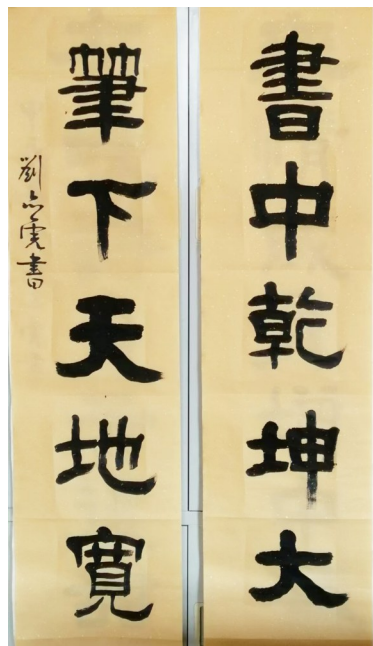 書中乾坤大
筆下天地寬
劉
書